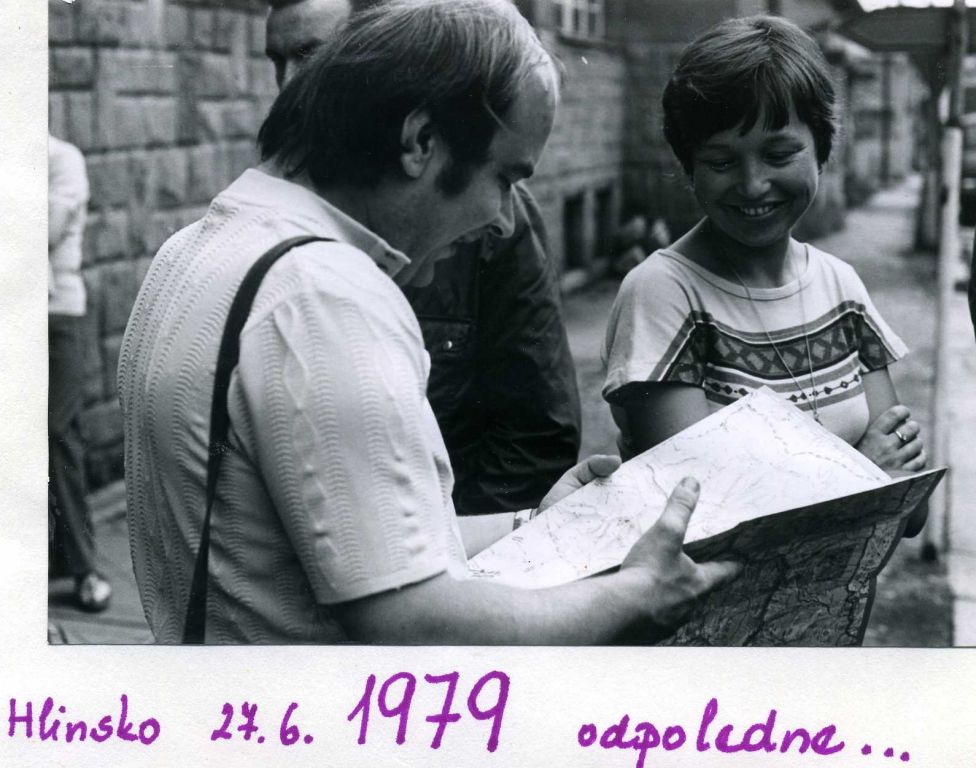 Hlinsko 27. 6. 1979 odpoledne...